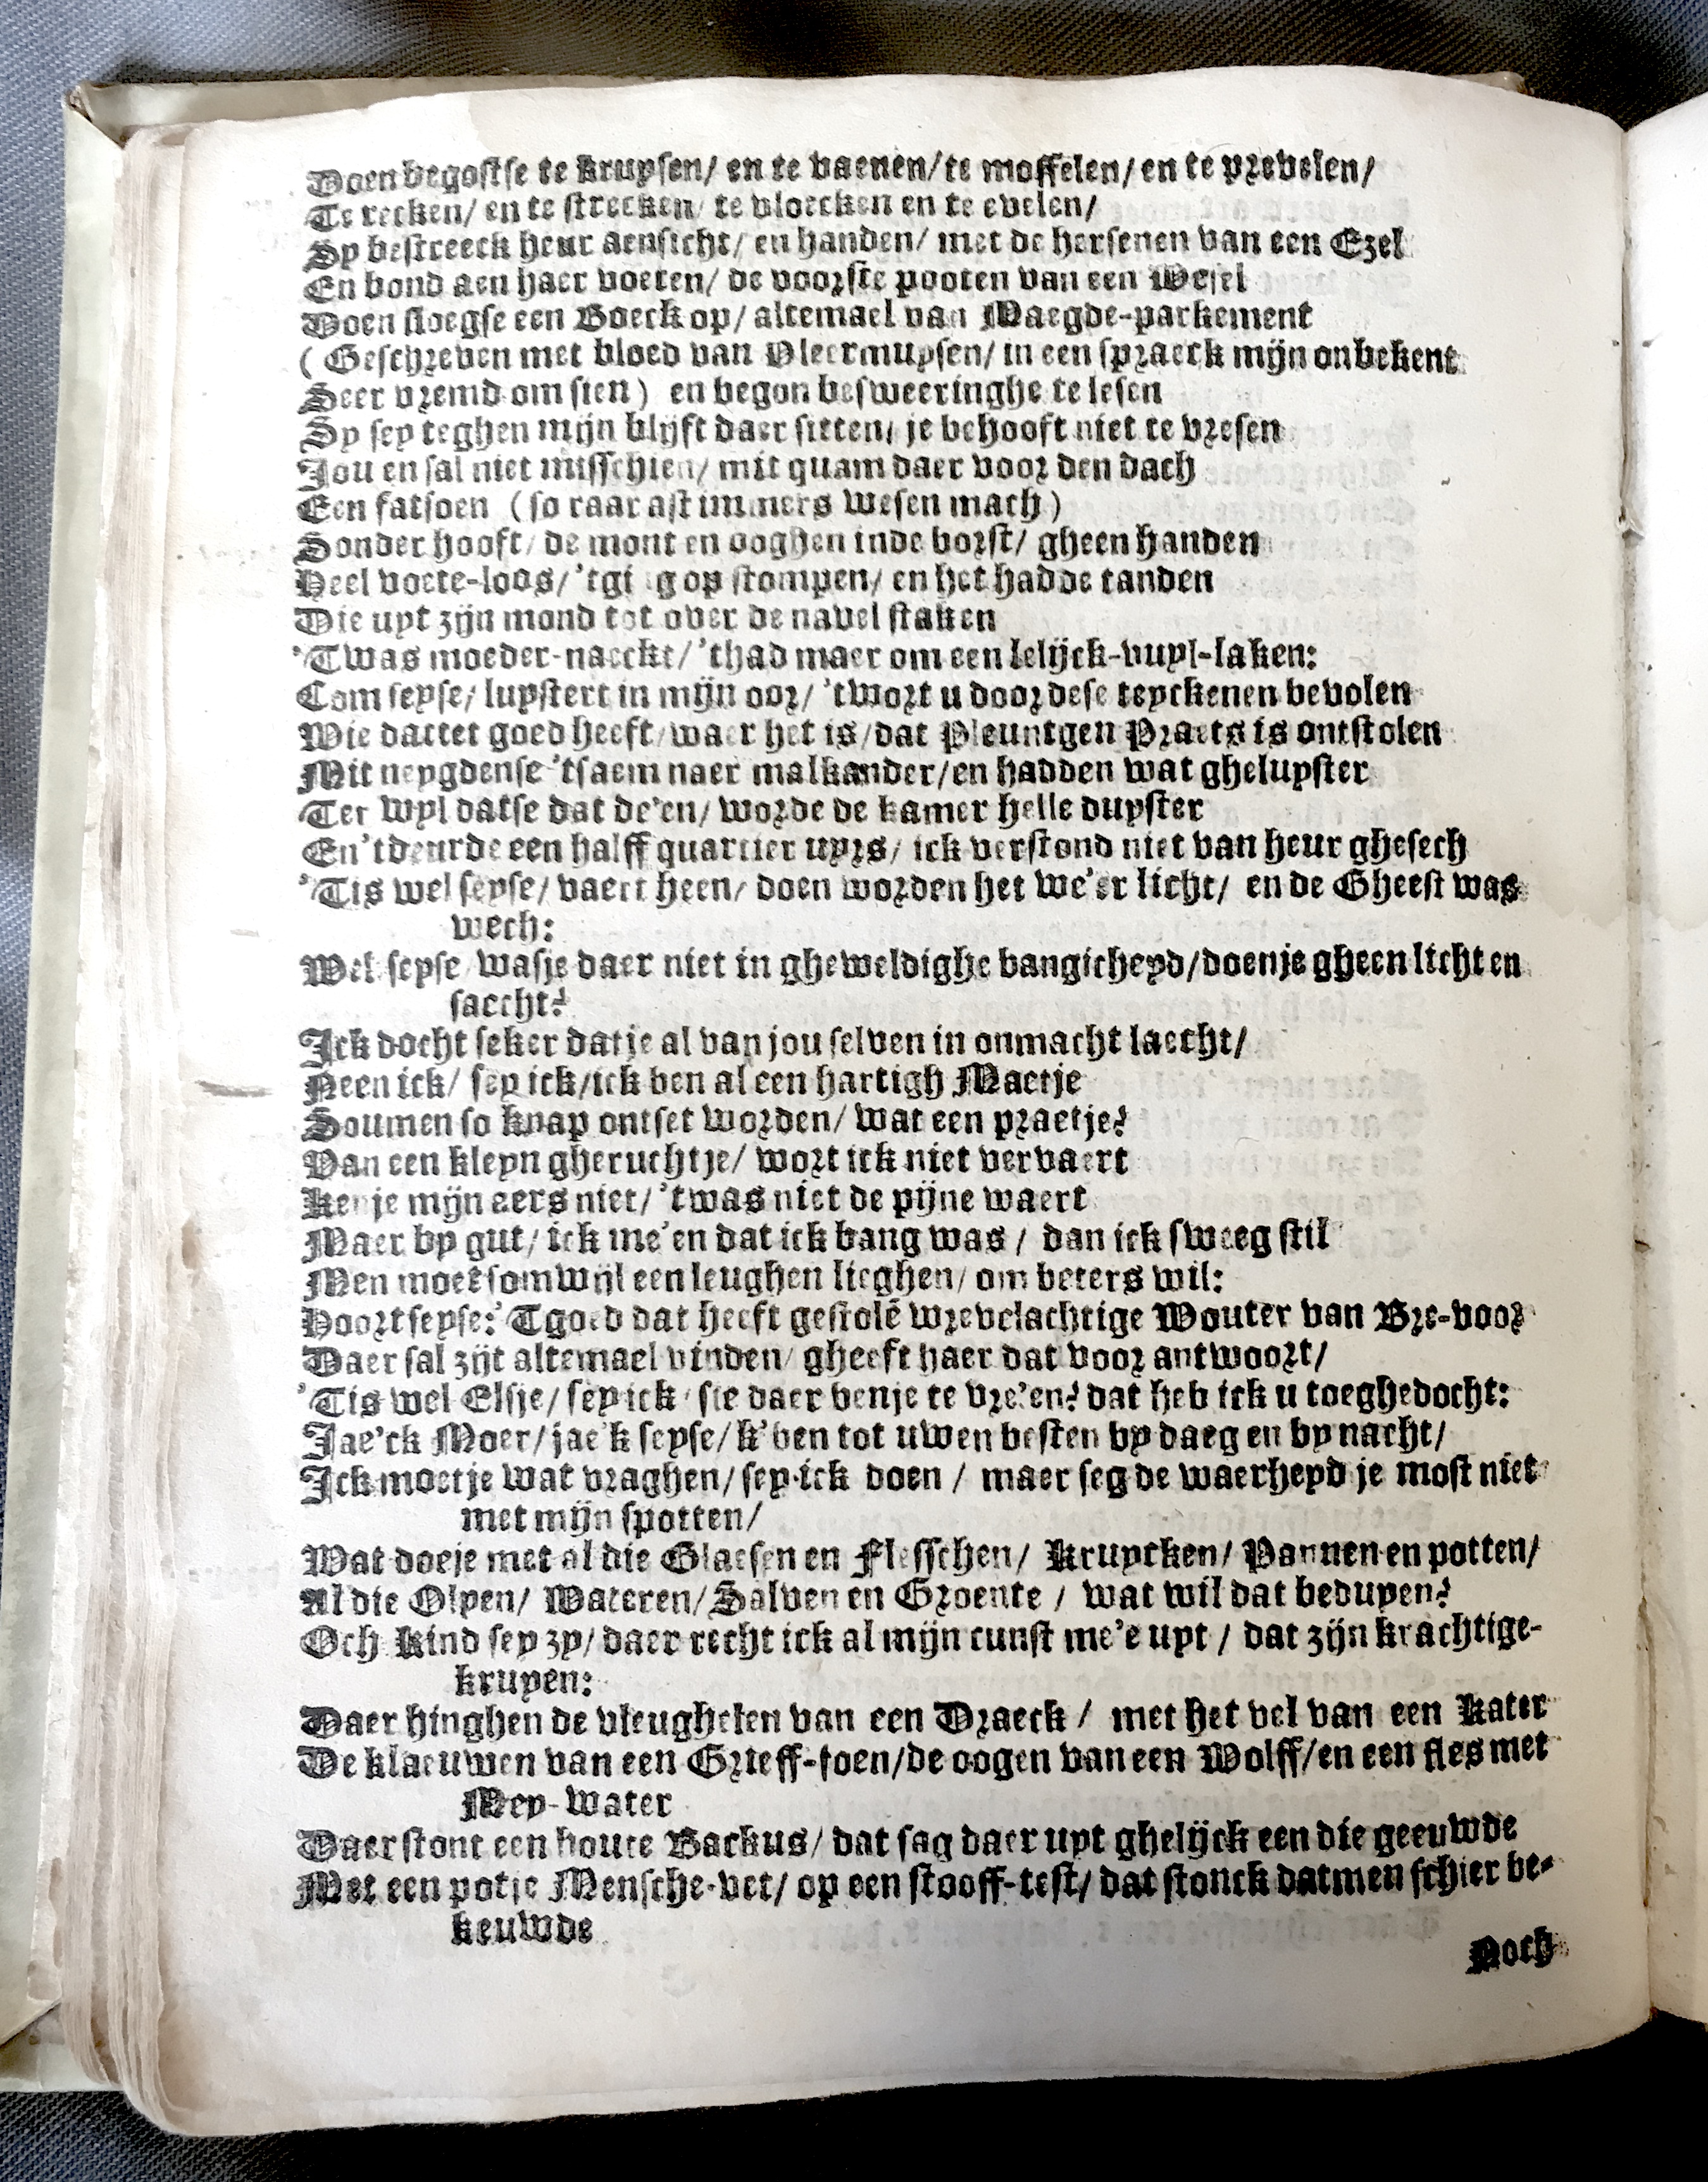 Doen begostse te kruysen/ en te vaenen/ te moffelen/ en te prevelen/
Te recken/ en te strecken/ te vloecken en te evelen/
Sy bestreeck heur aensicht/ en handen/ met de hersenen van een Ezel
En bond aen haer voeten/ de voorste pooten van een Wesel
Doen sloegse een Boeck op/ altemael van Maegde-parkement
( Geschreven met bloed van Vleermuysen/ in een spraeck mijn onbekent
Seer vremd om sien ) en begon besweeringhe te lesen
Sy sey teghen mijn blijft daer sitten/ je behooft niet te vresen
Jou en sal niet misschien/ mit quam daer voor den dach
Een fatsoen ( so raar ast immers wesen mach )
Sonder hooft/ de mont en ooghen inde borst/ gheen handen
Heel voete-loos/ 'tging op stompen/ en het hadde tanden
Die uyt zijn mond tot over de navel staken
'Twas moeder-naeckt/ 'thad maer om een lelijck-vuyl-laken:
Com seyse/ luystert in mijn oor/ 'twort u door dese teyckenen bevolen
Wie dattet goed heeft/ waer het is/ dat Pleuntgen Praets is ontstolen
Mit neygdense 'tsaem naer malkander/ en hadden wat ghelupster
Ter wyl datse dat de'en/ worde de kamer helle duyster
En 'tdeurde een halff quartier uyrs/ ick verstond niet van heur ghesech
'Tis wel seyse/ vaert heen/ doen worden het we'er licht/ en de Gheest was
wech:
Wel seyse wasje daer niet in gheweldighe bangicheyd/ doenje gheen licht en
saecht?
Ick docht seker datje al van jou selven in onmacht laecht/
Neen ick/ sey ick/ ick ben al een hartigh Maetje
Soumen so knap ontset worden/ wat een praetje?
Van een kleyn gheruchtje/ wort ick niet vervaert
Kenje mijn aers niet/ 'twas niet de pijne waert
Maer by gut/ ick me'en dat ick bang was / dan ick sweeg stil
Men moet somwijl een leughen lieghen/ om beters wil:
Voort seyse: 'Tgoed dat heeft gestolē wrevelachtige Wouter van Bre-voor
Daer sal zijt altemael vinden/ gheeft haer dat voor antwoort/
'Tis wel Elsje/ sey ick/ sie daer benje te vre'en? dat heb ick u toeghedocht:
Jae'ck Moer/ jae'k seyse/ k'ben tot uwen besten by daeg en by nacht/
Ick moetje wat vraghen/ sey ick doen / maer seg de waerheyd je most niet
met mijn spotten/
Wat doeje met al die Glaesen en Flesschen/ Kruycken/ Pannen en potten/
Al die Olyen/ Wateren/ Salven en Groente / wat wil dat beduyen?
Och Kind sey zy/ daer recht ick al mijn cunst me'e uyt / dat zijn krachtige-
kruyen:
Daer hinghen de vleughelen van een Draeck / met het vel van een Kater
De klaeuwen van een Grieff-foen/ de oogen van een Wolff/ en een fles met
Mey-water
Daer stont een houte Backus/ dat sag daer uyt ghelijck een die geeuwde
Met een potje Mensche-vet/ op een stooff-test/ dat stonck datmen schier be-
keuwde
Noch